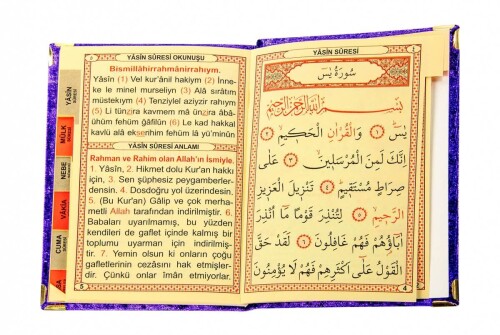 YÂSİN SÛRESİ OKUNUŞU
Bismillâhirrahmânirrahıym.
Yâsîn (1) Vel kur'ânil hakiym (2) İnne-
ke le minel murseliyn (3) Alâ sırâtım
müstekıym (4) Tenziylel aziyzir rahiym
(5) Li tünzira kavmem mâ ünzira âbâ-
ühüm fehüm ğâfilûn (6) Le kad hakkal
kavlü alâ ekserihim fehüm lâ yü'minûn
YÂSİN SÛRESİ ANLAMI
Rahman ve Rahim olan Allah'ın İsmiyle.
1. Yâsîn, 2. Hikmet dolu Kur'an hakkı
için, 3. Sen şüphesiz peygamberler-
densin. 4. Dosdoğru yol üzerindesin.
5. (Bu Kur'an) Gâlip ve çok merha-
metli Allah tarafından indirilmiştir. 6.
Babaları uyarılmamış, bu yüzden
kendileri de gaflet içinde kalmış bir
toplumu uyarman için indirilmiş-
tir. 7. Yemin olsun ki onların çoğu
gafletlerinin cezâsını hak etmişler-
dir. Çünkü onlar îmân etmiyorlar.
YÂSİN
SÛRESİ
MÜLK
NEBE
VÂKIA
CUMA
YÂSİN SÛRESİ
سُورَةُ يٰسٓ
بِسْمِ اللهِ الرَّحْمٰنِ الرَّحِيمِ
يٰسٓ ﴿١﴾ وَالْقُرْاٰنِ الْحَكِيمِ ﴿٢﴾
اِنَّكَ لَمِنَ الْمُرْسَلِينَ ﴿٣﴾ عَلٰى
صِرَاطٍ مُسْتَقِيمٍ ﴿٤﴾ تَنْزِيلَ الْعَزِيزِ
الرَّحِيمِ ﴿٥﴾ لِتُنْذِرَ قَوْمًا مَٓا اُنْذِرَ
اٰبَٓاؤُ۬هُمْ فَهُمْ غَافِلُونَ ﴿٦﴾ لَقَدْ حَقَّ
الْقَوْلُ عَلٰٓى اَكْثَرِهِمْ فَهُمْ لَا يُؤْمِنُونَ